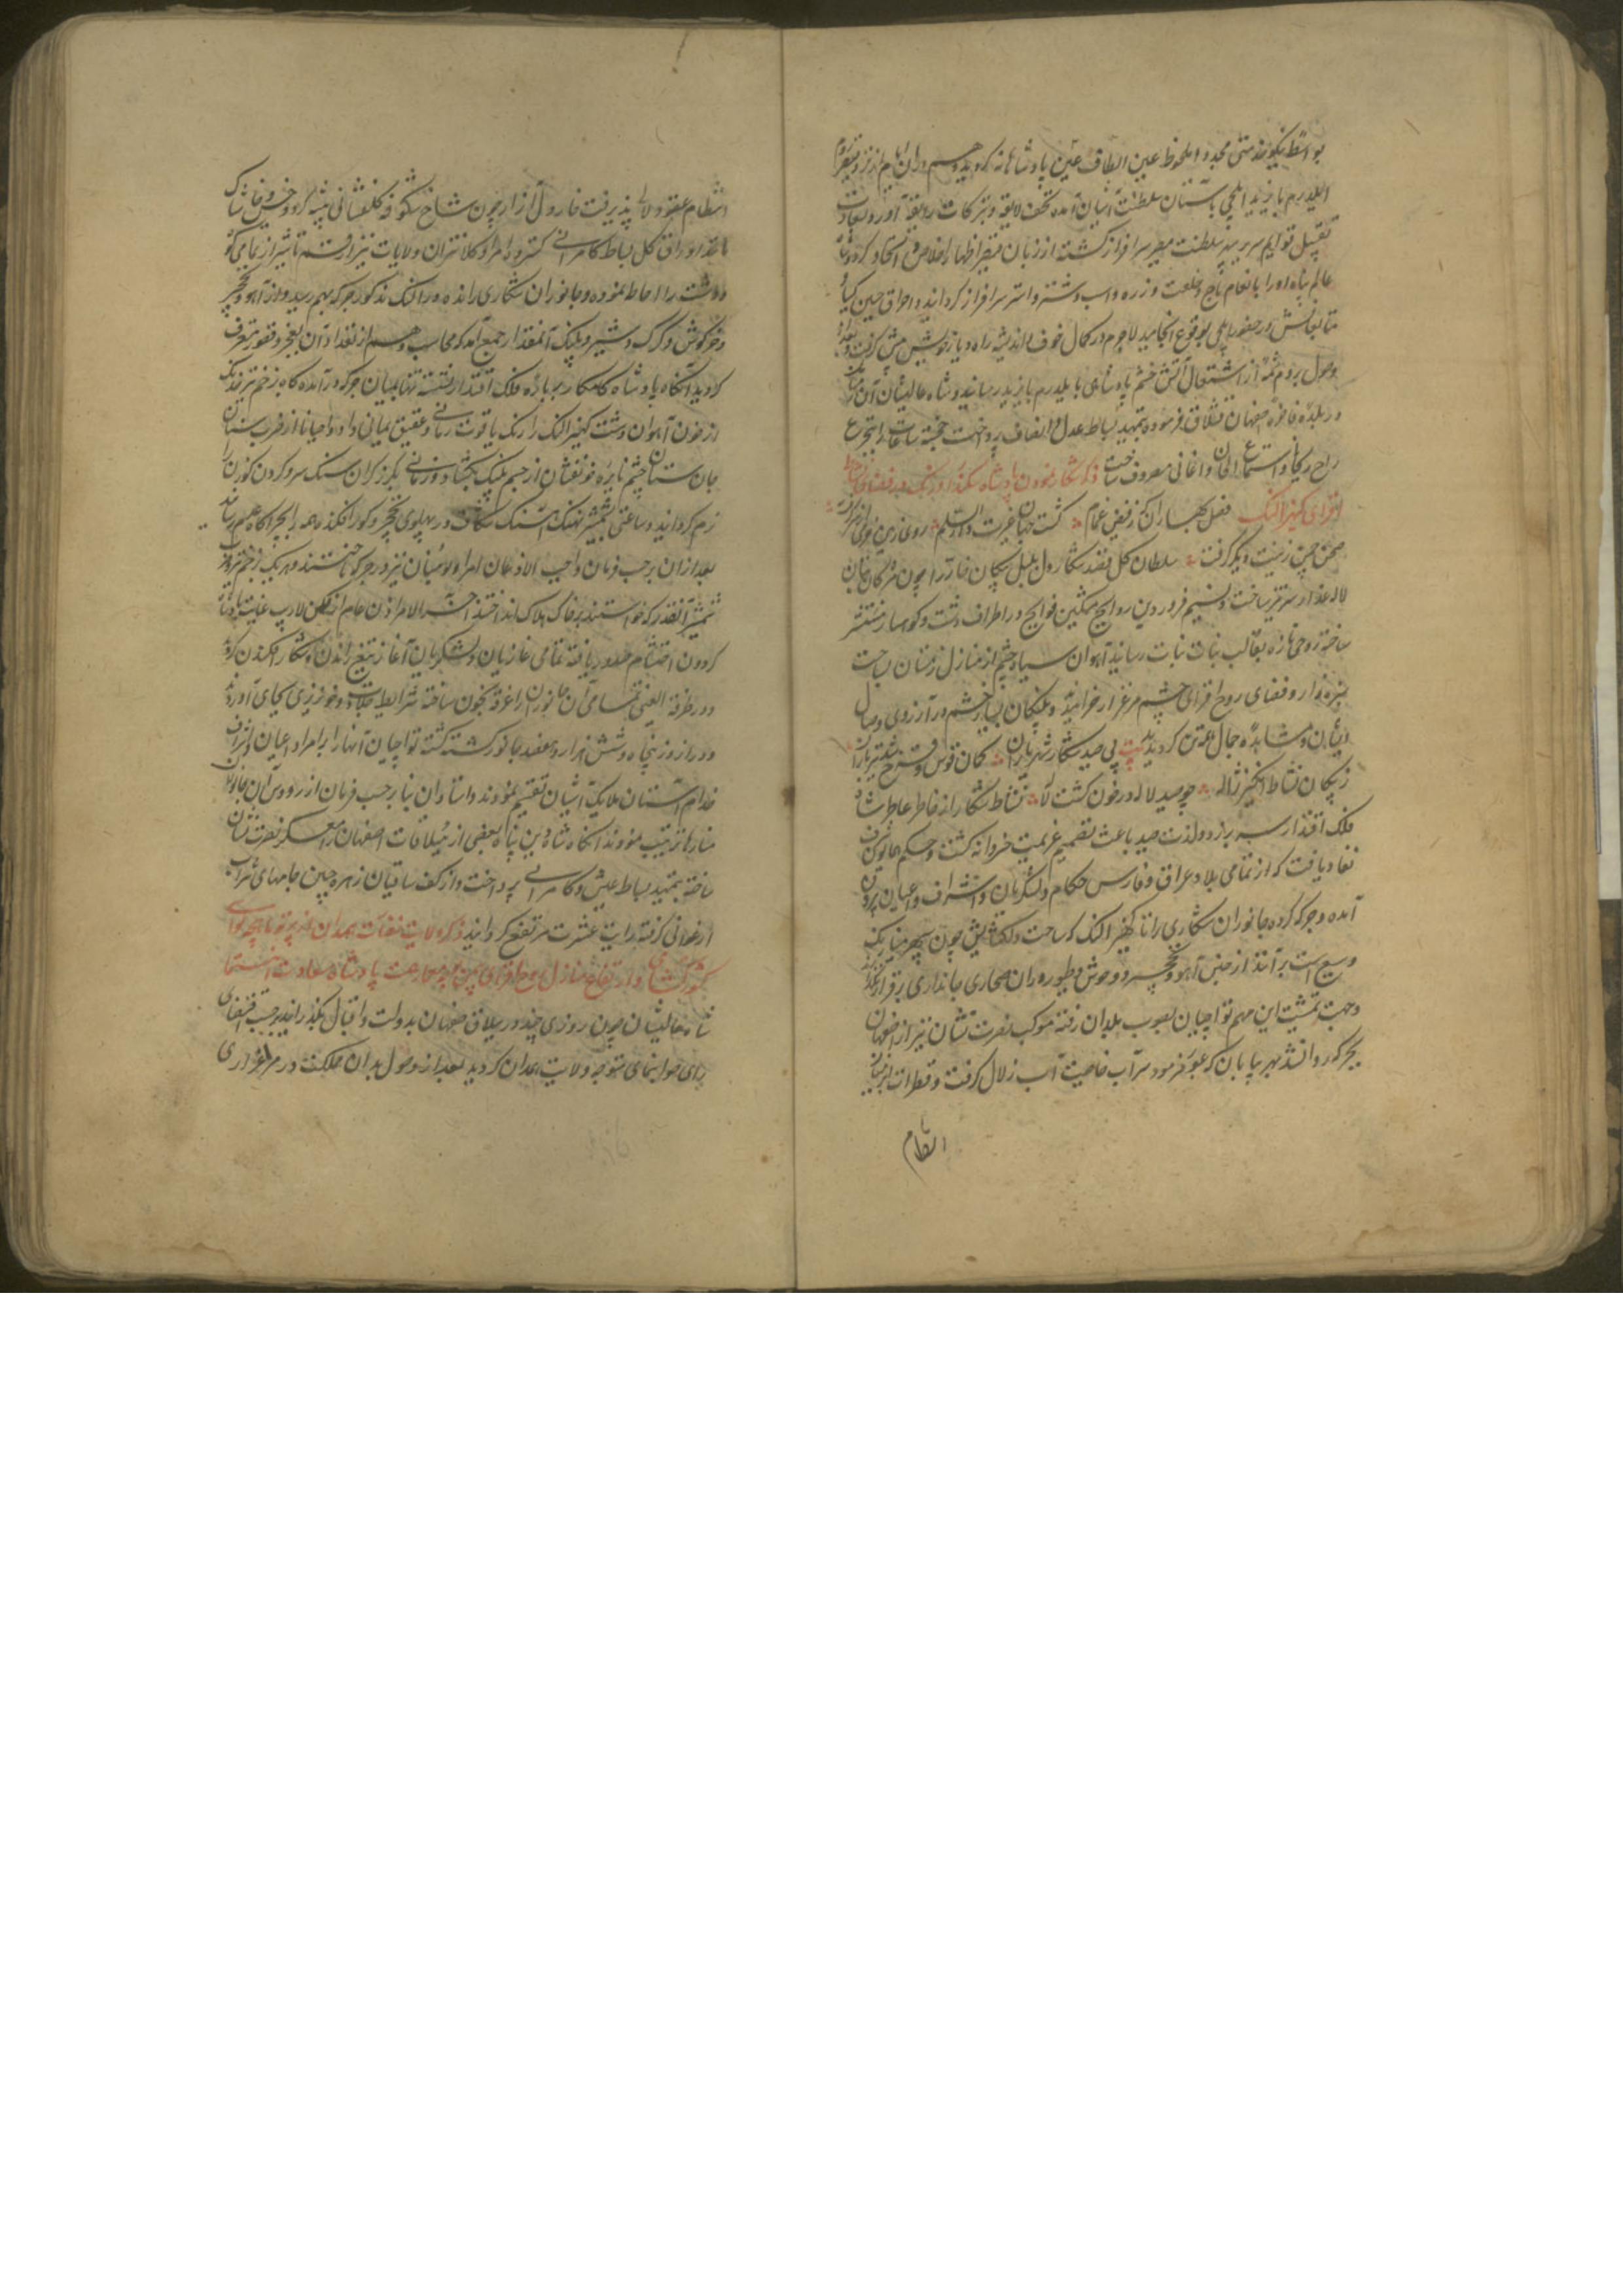 بواسطه نیکو خدمتی مجددا ملحوظ عین الطاف پادشاهانه گردید و هم دران ایام از نزد قیصر روم
ایلدرم بایزید ایلچی بآستان سلطنت آشیان آمده تحف لایقه و تبرکات رایقه آورد و بسعادت
تقبیل قوایم سریر سلطنت مصیر سرافراز گشته از زبان قیصر اظهار اخلاص و اتحاد کرد و شاه
عالم پناه او را بانعام تاج و خلعت و زره و اسب و شتر و استر سرافراز گردانید و احراق حسین کیا
متابعانش در حضور ایلچی بوقوع انجامید لاجرم در کمال خوف و اندیشه راه دیار خویش پیش گرفت و بعد از
وصول بروم شمه از اشتعال آتش خشم پادشاهی بایلدرم بایزید رسانید و شاه عالیشان آن زمستان
در بلده فاخره صفهان قشلاق فرموده بتمهید بساط عدل و انصاف پرداخت خجسته ساعات را بتجرع
راح ریحانی و استماع الحان و اغانی مصروف ساخت ذکر شکار نمودن پادشاه سکندر اورنگ در فضای نشاط
افزای کهیز النک فصل بهاران که ز فیض غمام گشت جهان غیرت دار السلام روی زمین
صحن چمن زینت دیگر گرفت سلطان گل بقصد شکار دل بلبل پیکان خار را چون مژگان خوبان
لاله عذار سرتیز ساخت و نسیم فروردین روایح مشکین فوایح در اطراف دشت و کوهسار منتشر
ساخته روحی تازه بقالب بنات نبات رسانید آهوان سیاه چشم از منازل زمستان بساحت
سبزه زار و فضای روح افزای چشم مرغزار خرامیدند و پلنگان بسیار خشم در آرزوی وصال
ایشان و مشاهده جمال معین گردیدند بیت پی صید شکار شهریاران کمان قوس و قزح شد تیر باران
ز پیکان نشاط انگیز ژاله چو صید لاله در خون گشت لاله نشاط شکار از خاطر عاطر شاه
فلک اقتدار سر بر زد و لذت صید باعث تصمیم عزیمت خسروانه گشت و حکم همایون شرف
نفاد یافت که از تمامی بلاد عراق و فارس حکام و لشکریان و اشراف و اعیان بیرون
آمده و جرکه کرده جانوران شکاری را تا کهیز النک که ساحت دلکشایش چون سپهر مینا رنگ
وسیع است برانند از جنس آهو و نخچیر و وحوش و طیور دران صحاری جانداری برقرار نگذارند
و جهت تمشیت این مهم تواچیان بصوب بلدان رفته موکب نصرت نشان نیز از اصفهان
بحرکه روانشد بهر بیابان که عبور فرمود سراب خاصیت آب زلال گرفت و قطرات
انتظام
انتظام عقود لالی پذیرفت خار دل آزار چون شاخ شکوفه گلفشانی پیشه کرد و خس و خاشاک
مانند اوراق گل بساط کامرانی گسترد امرا و کلانتران ولایات نیز از قم تا شیراز تمامی کوه
و دشت را احاطه نموده و جانوران شکاری را رانده در النک مذکور جرکه بهم رسید و از آهو و نخچیر
و خرگوش و گرگ و شیر و پلنگ آنمقدار جمع آمد که محاسب وهم از تعداد آن بعجز و قصور معترف
گردید آنگاه پادشاه کامکار بر باره فلک اقتدار نشسته تنها بمیان جرکه درآمده گاه بزخم تیر خدنگ
از خون آهوان دشت کهیز النک را رنگ یاقوت رمانی و عقیق یمانی داد و احیانا از ضرب سنان
جان ستان چشم نایره خونفشان از جسم پلنگ بگشاد و زمانی بگرز گران سنگ سر و گردن گوزن را
نرم گردانید و ساعتی بشمشیر نهنگ آهنگ شکاف در پهلوی نخچیر و گور افکنده همه را بچراگاه عدم رساند
بعد ازان برحسب فرمان واجب الاذعان امرا و اعیان نیز در جرکه جستند و هر یک بزخم تیر و ضرب
شمشیر آنقدر که خواستند بر خاک هلاک انداختند آخر الامر اذن عام از مکمن لاریب عنایت پادشاه
گردون احتشام صدور یافته تمامی غازیان و لشکریان آغاز تیغ راندن و شکار افکندن کردند
و در طرفة العینی تمامی آن جانوران را غرقه بخون ساخته شرایط جلادت و خونریزی بجای آوردند
و دران روز پنجاه و شش هزار و هفصد جانور کشته گشته تواچیان آنها را بر امرا و اعیان و اشراف
خدام آستان ملایک آشیان تقسیم نمودند و استادان بنا برحسب فرمان از رووس آن جانوران
منارها ترتیب نمودند آنگاه شاه دین پناه بعضی از ییلاقات اصفهان را معسکر نصرت نشان
ساخته بتمهید بساط عیش و کامرانی پرداخت و از کف ساقیان زهره جبین جامهای شراب
ارغوانی گرفته رایت عشرت مرتفع گردانید ذکر ولایت نفقات همدان از پرتو ماهچه لوای
کشورکشای و ارتفاع منازل روح افزای بیمن معارضت پادشاه سعادت انتما
شاه عالیشان چون روزی چند در ییلاق صفهان بدولت و اقبال بگذرانید برحسب اقتضای
رای صوابنمای متوجه ولایت همدان گردید بعد از وصول بدان مملکت در مرغزاری